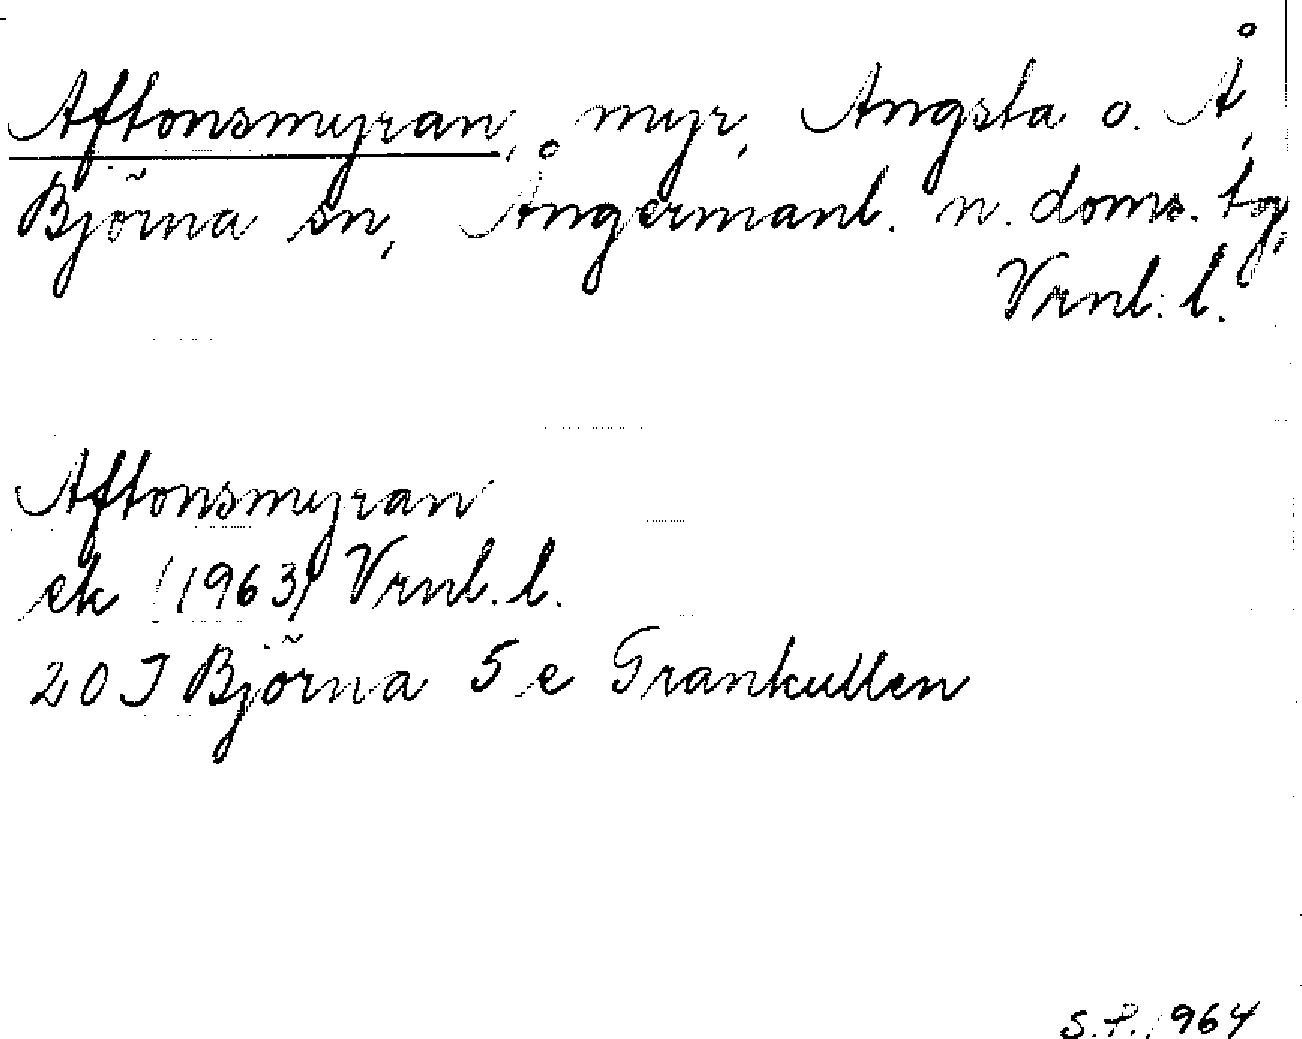 Aftonsmyran, myr, Angsta o. Å,
Björna sn, Ångermanl. n. doms. tg,
Vrnl. l.
Aftonsmyran
ek (1963) Vrnl. l.
20 J Björna 5 e Grankullen
S.P. 1964